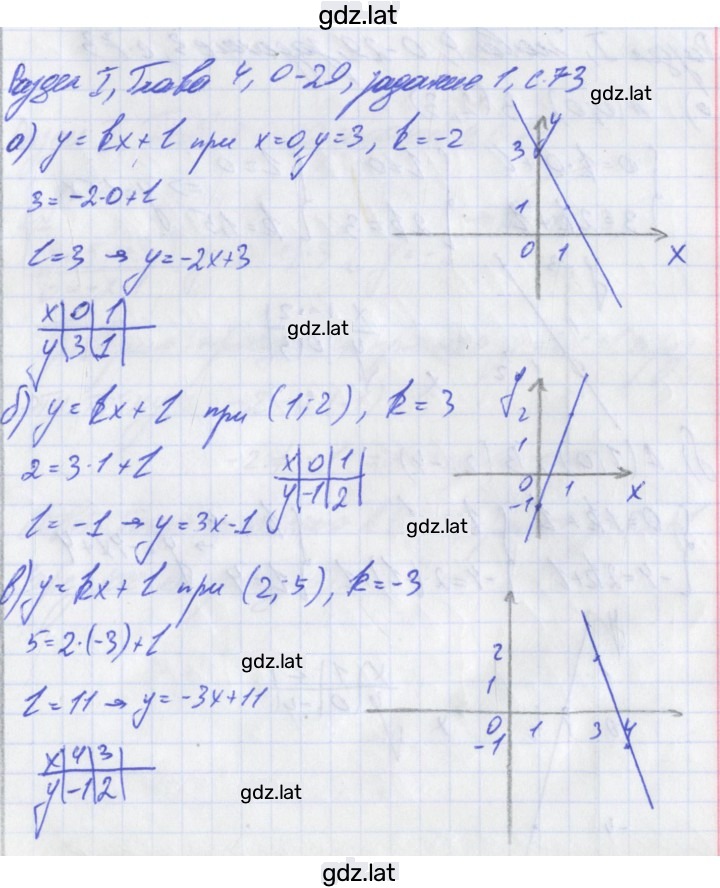 gdz.lat
Раздел I, Глава 4, О-29, задание 1, с.73
gdz.lat
а) y = kx + l при x=0, y=3, k=-2
3 = -2·0+l
l=3 → y=-2x+3
x 0 1
y 3 1
y
3
1
0 1
x
gdz.lat
б) y = kx + l при (1;2), k = 3
2 = 3·1+l
l = -1 → y = 3x-1
x 0 1
y -1 2
y
2
1
0 1
-1
x
gdz.lat
в) y = kx + l при (2;5), k=-3
5=2·(-3)+l
l=11 → y = -3x+11
gdz.lat
x 4 3
y -1 2
2
1
0 1 3 4
-1
gdz.lat
gdz.lat